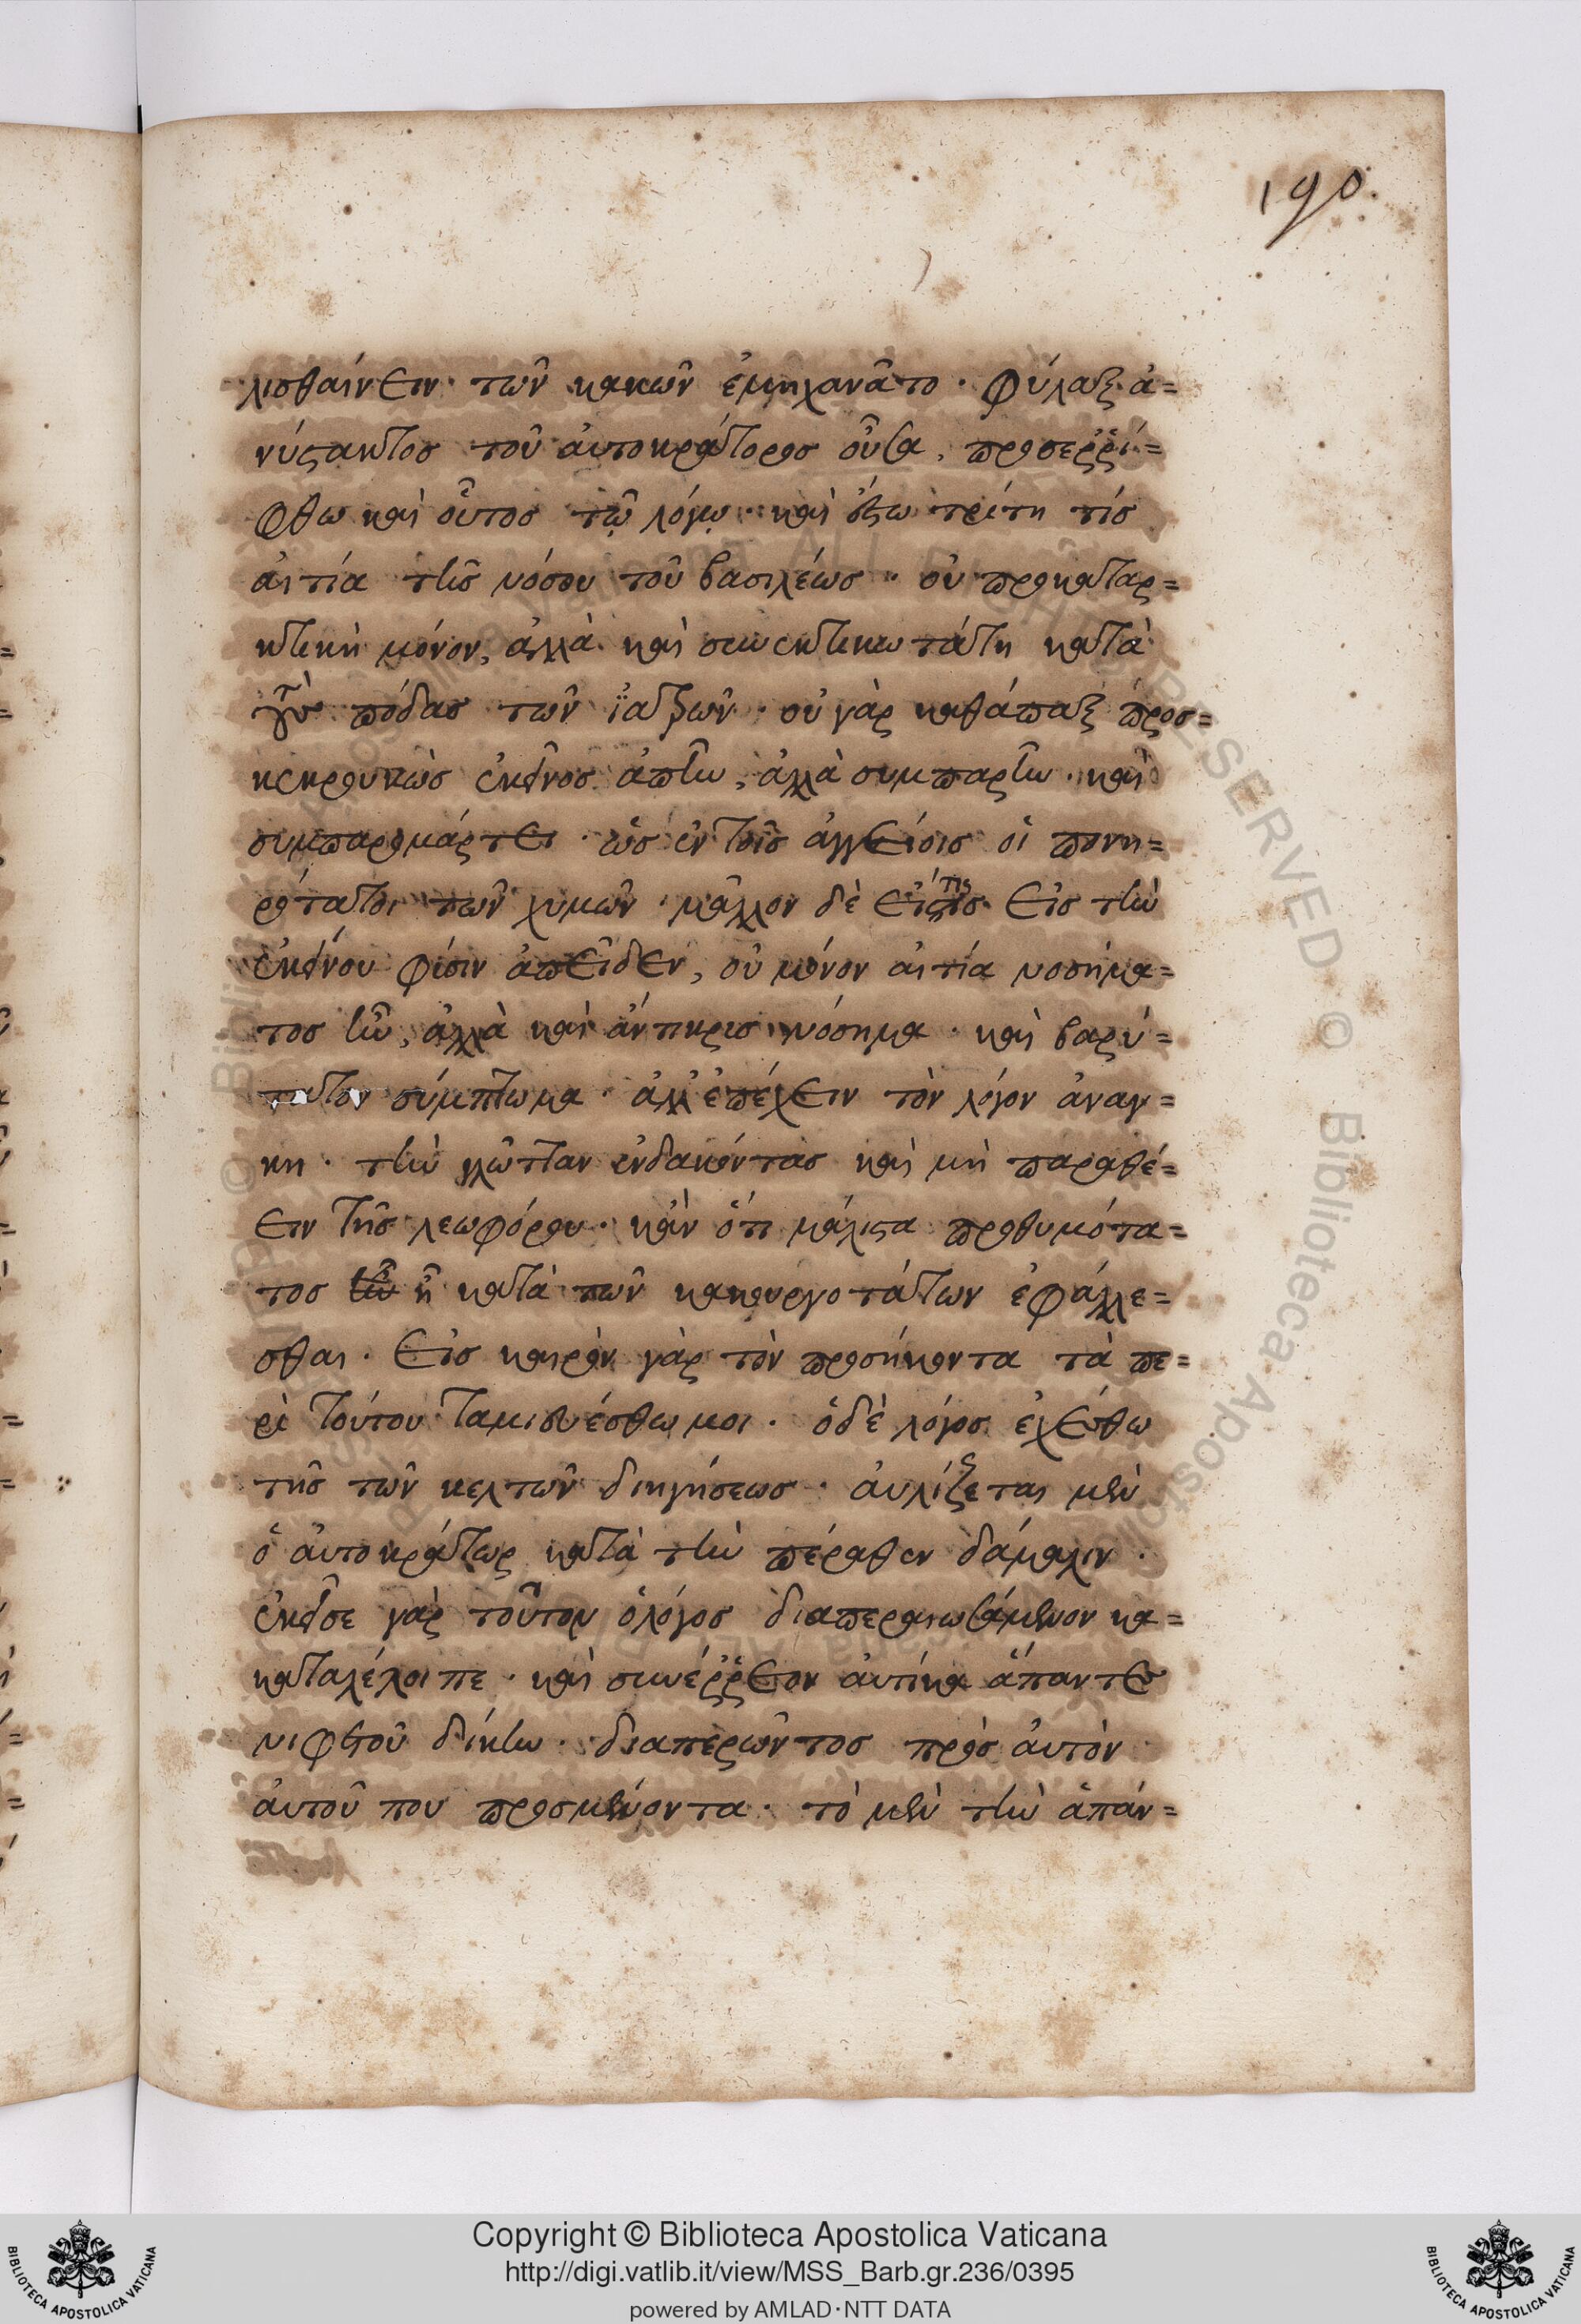 190.
λισθαίνειν τῶν κακῶν ἐμηχανᾶτο · φύλαξ ἀ=
νύστακτος τοῦ ἀυτοκράτορος οὖσα, προσερρί=
φθω καὶ οὗτος τῶ λόγω · καὶ ἔστω τρίτη τίς
αἰτία τῆς νόσου τοῦ βασιλέως · οὐ προκαταρ=
κτικὴ μόνον, ἀλλὰ καὶ συνεκτικωτάτη κατὰ
τοὺς πόδας τῶν ἰατρῶν · οὐ γὰρ καθάπαξ προσ=
κεκρουκὼς ἐκεῖνος ἀπῆν, ἀλλὰ συμπαρῆν · καὶ
συμπαρομάρτει · ὡς ἐν τοῖς ἀγγείοις οἱ πονη=
ρότατοι τῶν χυμῶν · μᾶλλον δὲ εἴ τις εἰς τὴν
ἐκείνου φύσιν ἀπεῖδεν, οὐ μόνον αἰτία νοσήμα=
τος ἦν, ἀλλὰ καὶ ἄντικρις νόσημα · καὶ βαρύ=
τατον σύμπτωμα · ἀλλ' ἐπέχειν τὸν λόγον ἀνάγ=
κη · τὴν γλῶτταν ἐνδακόντας καὶ μὴ παραθέ=
ειν τῆς λεωφόρου · κἂν ὅτι μάλιστα προθυμότα=
τος ἦν ἢ κατὰ τῶν κακουργοτάτων ἐφάλλε=
σθαι · εἰς καιρὸν γὰρ τὸν προσήκοντα τὰ πε=
ρὶ τούτου ταμιευέσθω μοι · ὁ δὲ λόγος ἐχέσθω
τῆς τῶν κελτῶν διηγήσεως · ἀυλίζεται μὲν
ὁ ἀυτοκράτωρ κατὰ τὴν πέραθεν δάμαλιν ·
ἐκεῖσε γὰρ τοῦτον ὁ λόγος διαπεραιωσάμενον κα=
καταλέλοιπε · καὶ συνέρρεον ἀυτίκα ἅπαντες
νιφετοῦ δίκην · διαπερῶντος πρὸς ἀυτὸν
ἀυτοῦ που προσμένοντα · τὸ μὲν τὴν ἁπάν=
Copyright © Biblioteca Apostolica Vaticana
http://digi.vatlib.it/view/MSS_Barb.gr.236/0395
powered by AMLAD·NTT DATA